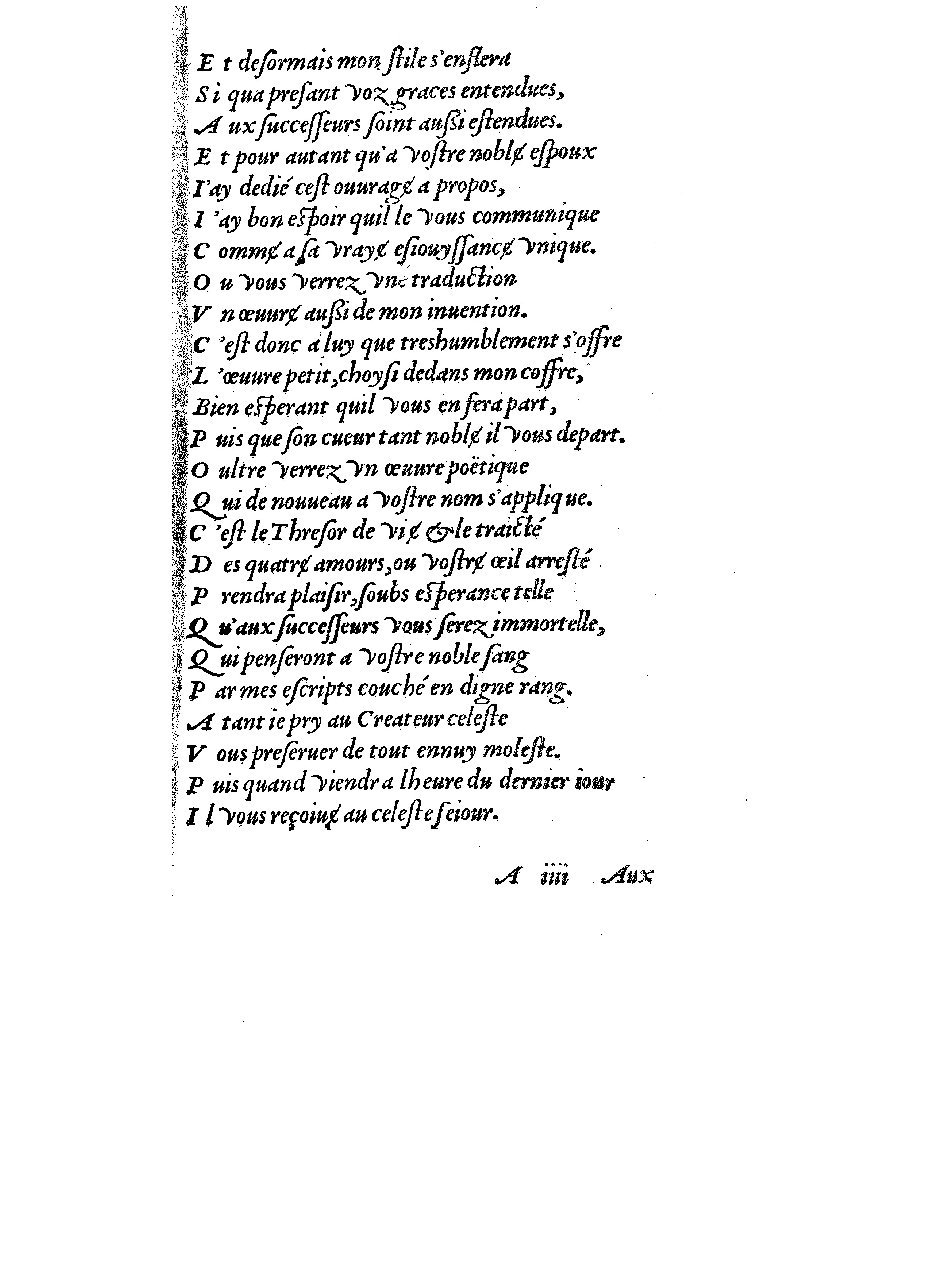 Et deſormais mon ſtile s'enflera
Si qua preſant voz graces entendues,
Aux ſucceſſeurs ſoint außi eſtendues.
Et pour autant qu'a voſtre nobl&#x247; eſpoux
I'ay dedié ceſt ouurag&#x247; a propos,
I'ay bon eſpoir quil le vous communique
Comm&#x247; a ſa vray&#x247; eſiouyſſanc&#x247; vnique.
Ou vous verrez vne traduction
Vn œuur&#x247; außi de mon inuention.
C'eſt donc a luy que treshumblement s'offre
L'œuure petit, choyſi dedans mon coffre,
Bien eſperant quil vous en fera part,
Puis que ſon cueur tant nobl&#x247; il vous depart.
Oultre verrez vn œuure poëtique
Qui de nouueau a voſtre nom s'applique.
C'eſt le Threſor de vi&#x247; & le traicté
Des quatr&#x247; amours, ou voſtr&#x247; œil arreſté
Prendra plaiſir, ſoubs eſperance telle
Qu'aux ſucceſſeurs vous ſerez immortelle,
Qui penſeront a voſtre noble ſang
Par mes eſcripts couché en digne rang.
Atant ie pry au Createur celeſte
Vous preſeruer de tout ennuy moleſte.
Puis quand viendra lheure du dernier iour
Il vous reçoiu&#x247; au celeſte ſeiour.
A iiii Aux